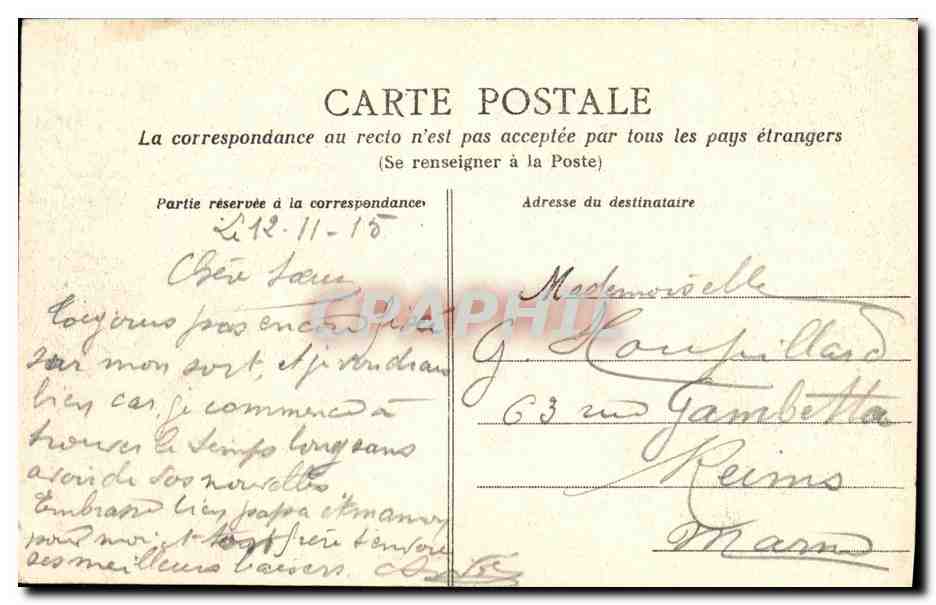 CARTE POSTALE
La correspondance au recto n'est pas acceptée par tous les pays étrangers
(Se renseigner à la Poste)
Partie réservée à la correspondance
Adresse du destinataire
Le 12-11-15
Chère Sœur
Toujours pas encore fixé
sur mon sort, et je voudrais
bien car je commence à
trouver le temps long sans
avoir de vos nouvelles
Embrasse bien papa et maman
pour moi et ton frère t'envoie
ses meilleurs baisers.
Mademoiselle
G. Houpillard
63 rue Gambetta
Reims
Marne
CPAPHIL